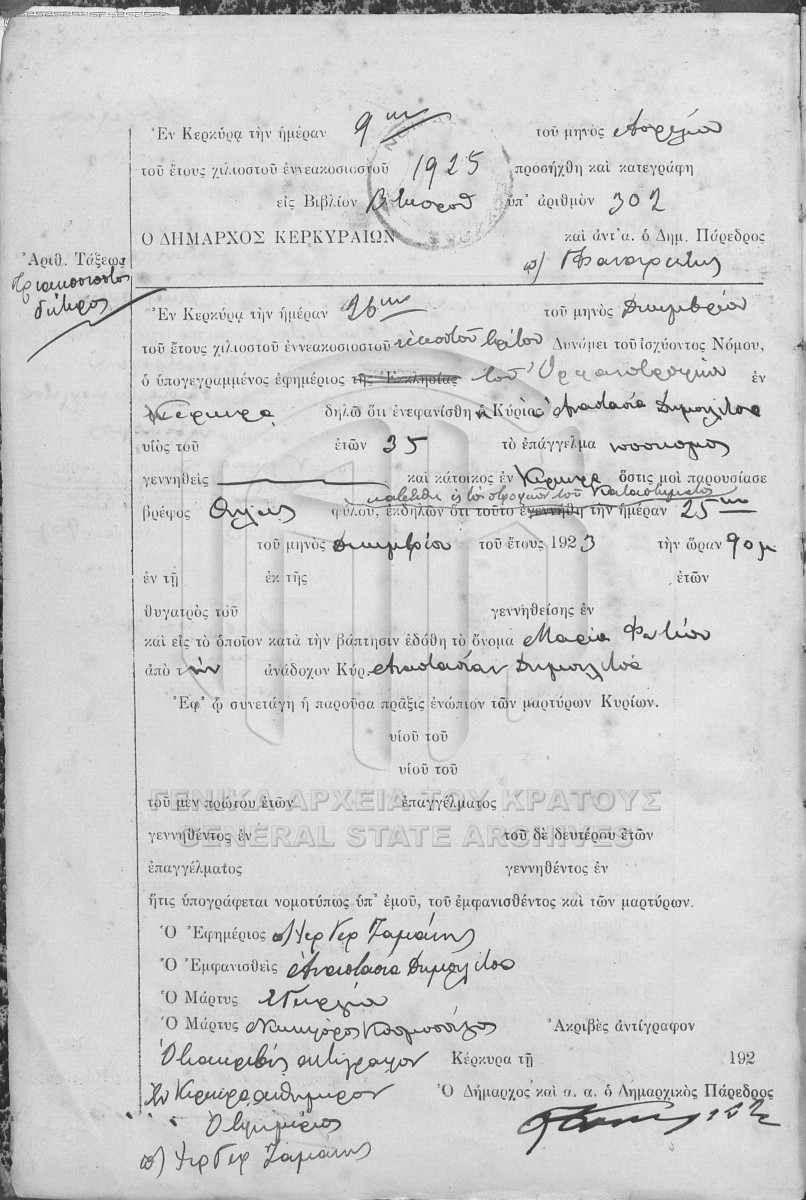 Ἐν Κερκύρᾳ τὴν ἡμέραν 9ην τοῦ μηνὸς Ἀπριλίου
τοῦ ἔτους χιλιοστοῦ ἐννεακοσιοστοῦ 1925 προσήχθη καὶ κατεγράφη
εἰς Βιβλίον ὑπ' ἀριθμὸν 302
Ο ΔΗΜΑΡΧΟΣ ΚΕΡΚΥΡΑΙΩΝ καὶ ἀντ'α. ὁ Δημ. Πάρεδρος
Ἀριθ. Τάξεως
τριακοσιοστὸς
δεύτερος
Ἐν Κερκύρᾳ τὴν ἡμέραν 26ην τοῦ μηνὸς Δεκεμβρίου
τοῦ ἔτους χιλιοστοῦ ἐννεακοσιοστοῦ εἰκοστοῦ τρίτου Δυνάμει τοῦ ἰσχύοντος Νόμου,
ὁ ὑπογεγραμμένος ἐφημέριος τῆς Ἐκκλησίας τοῦ Ὀρφανοτροφείου ἐν
Κέρκυρα δηλῶ ὅτι ἐνεφανίσθη ἡ Κυρία Ἀναστασία Δημουλίτσα
υἱὸς τοῦ ἐτῶν 35 τὸ ἐπάγγελμα
γεννηθεὶς καὶ κάτοικος ἐν Κέρκυρα ὅστις μοὶ παρουσίασε
κατετέθη εἰς τὸν στροφεῖον τοῦ Καταστήματος
βρέφος θήλεος φύλου, ἐκδηλῶν ὅτι τοῦτο ἐγεννήθη τὴν ἡμέραν 25ην
τοῦ μηνὸς Δεκεμβρίου τοῦ ἔτους 1923 τὴν ὥραν 9 π μ
ἐν τῇ ἐκ τῆς ἐτῶν
θυγατρὸς τοῦ γεννηθείσης ἐν
καὶ εἰς τὸ ὁποῖον κατὰ τὴν βάπτισιν ἐδόθη τὸ ὄνομα Μαρία Φωτίου
ἀπὸ τὴν ἀνάδοχον Κύρ. Ἀναστασίαν Δημουλίτσα
Ἐφ' ᾧ συνετάγη ἡ παροῦσα πρᾶξις ἐνώπιον τῶν μαρτύρων Κυρίων.
υἱοῦ τοῦ
υἱοῦ τοῦ
ΓΕΝΙΚΑ ΑΡΧΕΙΑ ΤΟΥ ΚΡΑΤΟΥΣ
τοῦ μὲν πρώτου ἐτῶν ἐπαγγέλματος
GENERAL STATE ARCHIVES
γεννηθέντος ἐν τοῦ δὲ δευτέρου ἐτῶν
ἐπαγγέλματος γεννηθέντος ἐν
ἥτις ὑπογράφεται νομοτύπως ὑπ' ἐμοῦ, τοῦ ἐμφανισθέντος καὶ τῶν μαρτύρων.
Ὁ Ἐφημέριος
Ὁ Ἐμφανισθεὶς Ἀναστασία Δημουλίτσα
Ὁ Μάρτυς
Ὁ Μάρτυς Ἀκριβὲς ἀντίγραφον
ἀντίγραφον Κέρκυρα τῇ 192
Ἐν Κερκύρᾳ αὐθημερόν Ὁ Δήμαρχος καὶ α. α. ὁ Δημαρχικὸς Πάρεδρος
Ὁ ἐφημέριος